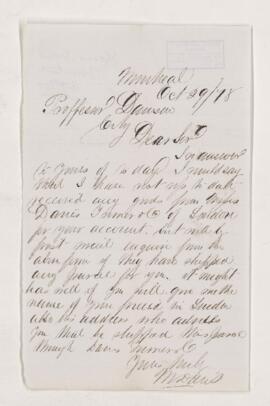 Montreal
Oct 29/78
Professor Dawson
City
Dear Sir
In answer
to yours of to day I would say
that I have not up to date
received any goods from Messrs
Davis Turner & Co of London
for your account. but will by
first mail enquire from the
above firm if they have shipped
any parcel for you. it might
be as well if you will give me the
name of your friend in London
also his address who advises
you that he shipped this parcel
through Davis Turner & Co
Yours truly